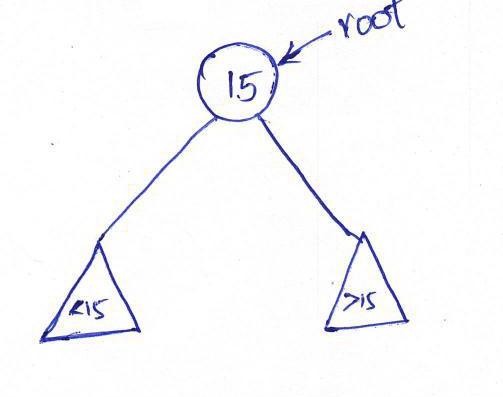 root
15
<15
>15